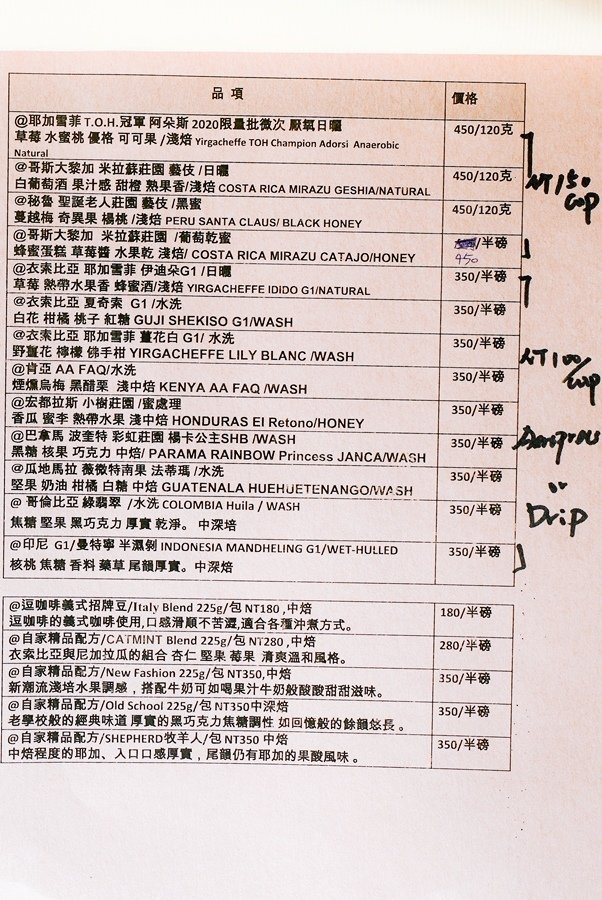 品 項 價格
@耶加雪菲 T.O.H.冠軍 阿朵斯 2020限量批微次 厭氧日曬 450/120克
草莓 水蜜桃 優格 可可果 /淺焙 Yirgacheffe TOH Champion Adorsi Anaerobic
Natural
@哥斯大黎加 米拉蘇莊園 藝伎 /日曬 450/120克
白葡萄酒 果汁感 甜橙 熟果香/淺焙 COSTA RICA MIRAZU GESHIA/NATURAL
@秘魯 聖誕老人莊園 藝伎 /黑蜜 450/120克
蔓越梅 奇異果 楊桃 /淺焙 PERU SANTA CLAUS/ BLACK HONEY
NT150
cop
@哥斯大黎加 米拉蘇莊園 /葡萄乾蜜 /半磅
蜂蜜蛋糕 草莓醬 水果乾 /淺焙/ COSTA RICA MIRAZU CATAJO/HONEY 450
@衣索比亞 耶加雪菲 伊迪朵G1 /日曬 350/半磅
草莓 熱帶水果香 蜂蜜酒/淺焙 YIRGACHEFFE IDIDO G1/NATURAL
@衣索比亞 夏奇索 G1 /水洗 350/半磅
白花 柑橘 桃子 紅糖 GUJI SHEKISO G1/WASH
@衣索比亞 耶加雪菲 薑花白 G1/ 水洗 350/半磅
野薑花 檸檬 佛手柑 YIRGACHEFFE LILY BLANC /WASH
NT100
/cop
@肯亞 AA FAQ/水洗 350/半磅
煙燻烏梅 黑醋栗 淺中焙 KENYA AA FAQ /WASH
@宏都拉斯 小樹莊園 /蜜處理 350/半磅
香瓜 蜜李 熱帶水果 淺中焙 HONDURAS El Retono/HONEY
@巴拿馬 波奎特 彩虹莊園 楊卡公主SHB /WASH 350/半磅
黑糖 核果 巧克力 中焙/ PARAMA RAINBOW Princess JANCA/WASH
@瓜地馬拉 薇薇特南果 法蒂瑪/水洗 350/半磅
堅果 奶油 柑橘 白糖 中焙 GUATENALA HUEHUETENANGO/WASH
@ 哥倫比亞 綠翡翠 /水洗 COLOMBIA Huila / WASH 350/半磅
焦糖 堅果 黑巧克力 厚實 乾淨。 中深焙
Drip
@印尼 G1/曼特寧 半濕剝 INDONESIA MANDHELING G1/WET-HULLED 350/半磅
核桃 焦糖 香料 藥草 尾韻厚實。中深焙
@逗咖啡義式招牌豆/Italy Blend 225g/包 NT180 ,中焙 180/半磅
逗咖啡的義式咖啡使用,口感滑順不苦澀,適合各種沖煮方式。
@自家精品配方/CATMINT Blend 225g/包 NT280 ,中焙 280/半磅
衣索比亞與尼加拉瓜的組合 杏仁 堅果 莓果 清爽溫和風格。
@自家精品配方/New Fashion 225g/包 NT350,中焙 350/半磅
新潮流淺焙水果調感，搭配牛奶可如喝果汁牛奶般酸酸甜甜滋味。
@自家精品配方/Old School 225g/包 NT350中深焙 350/半磅
老學校般的經典味道 厚實的黑巧克力焦糖調性 如回憶般的餘韻悠長 。
@自家精品配方/SHEPHERD牧羊人/包 NT350 中焙 350/半磅
中焙程度的耶加、入口口感厚實，尾韻仍有耶加的果酸風味 。